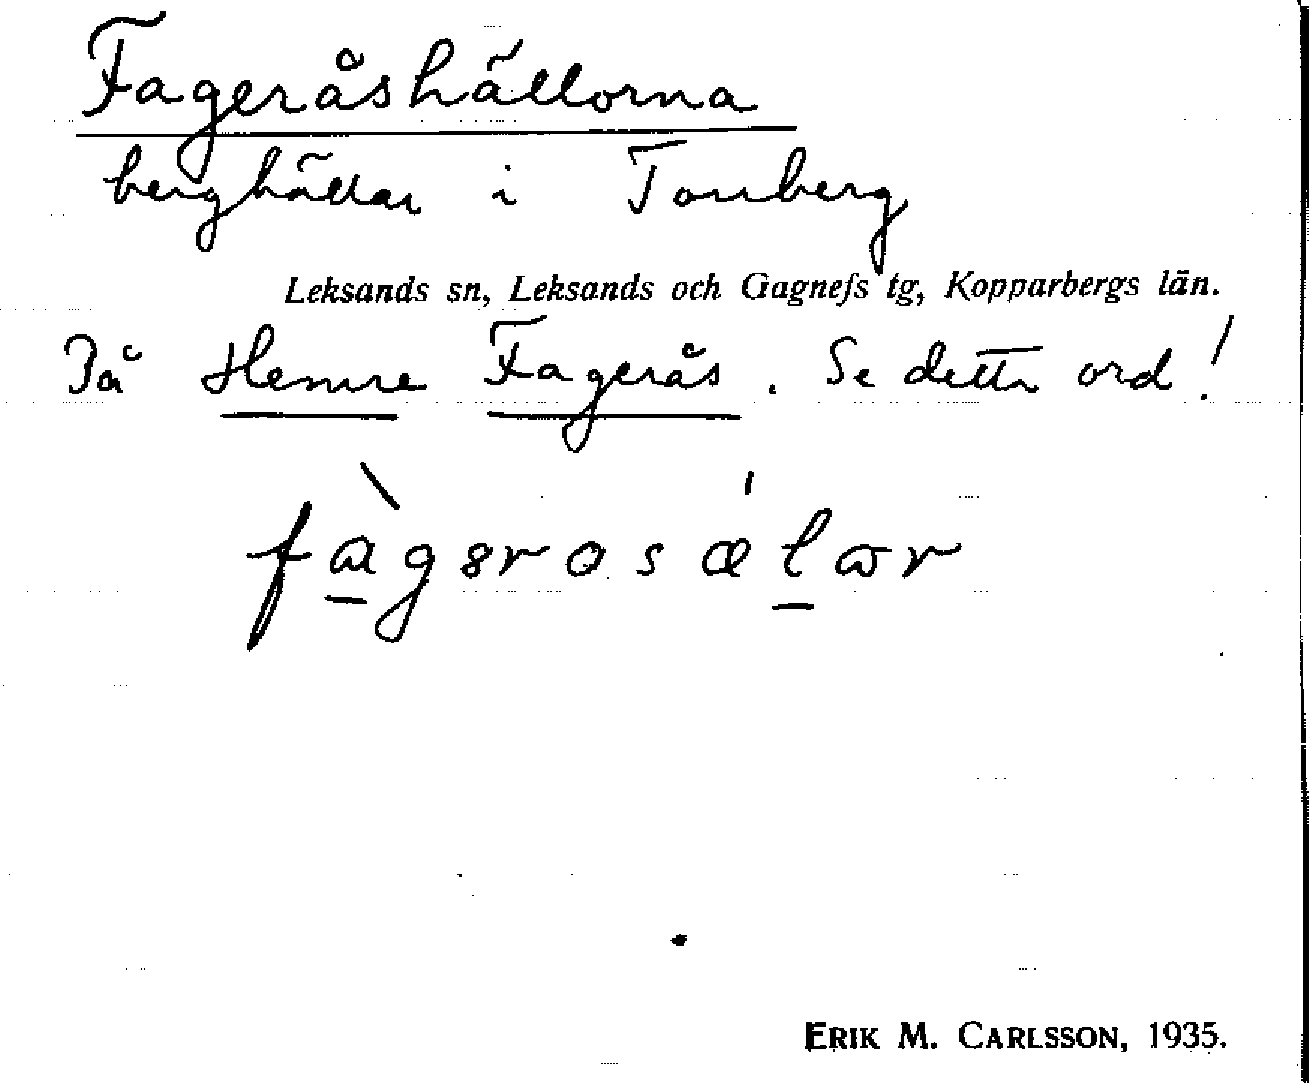 Fageråshällorna
berghällar i Tonberg
Leksands sn, Leksands och Gagnefs tg, Kopparbergs län.
På Hemre Fagerås. Se detta ord!
ERIK M. CARLSSON, 1935.